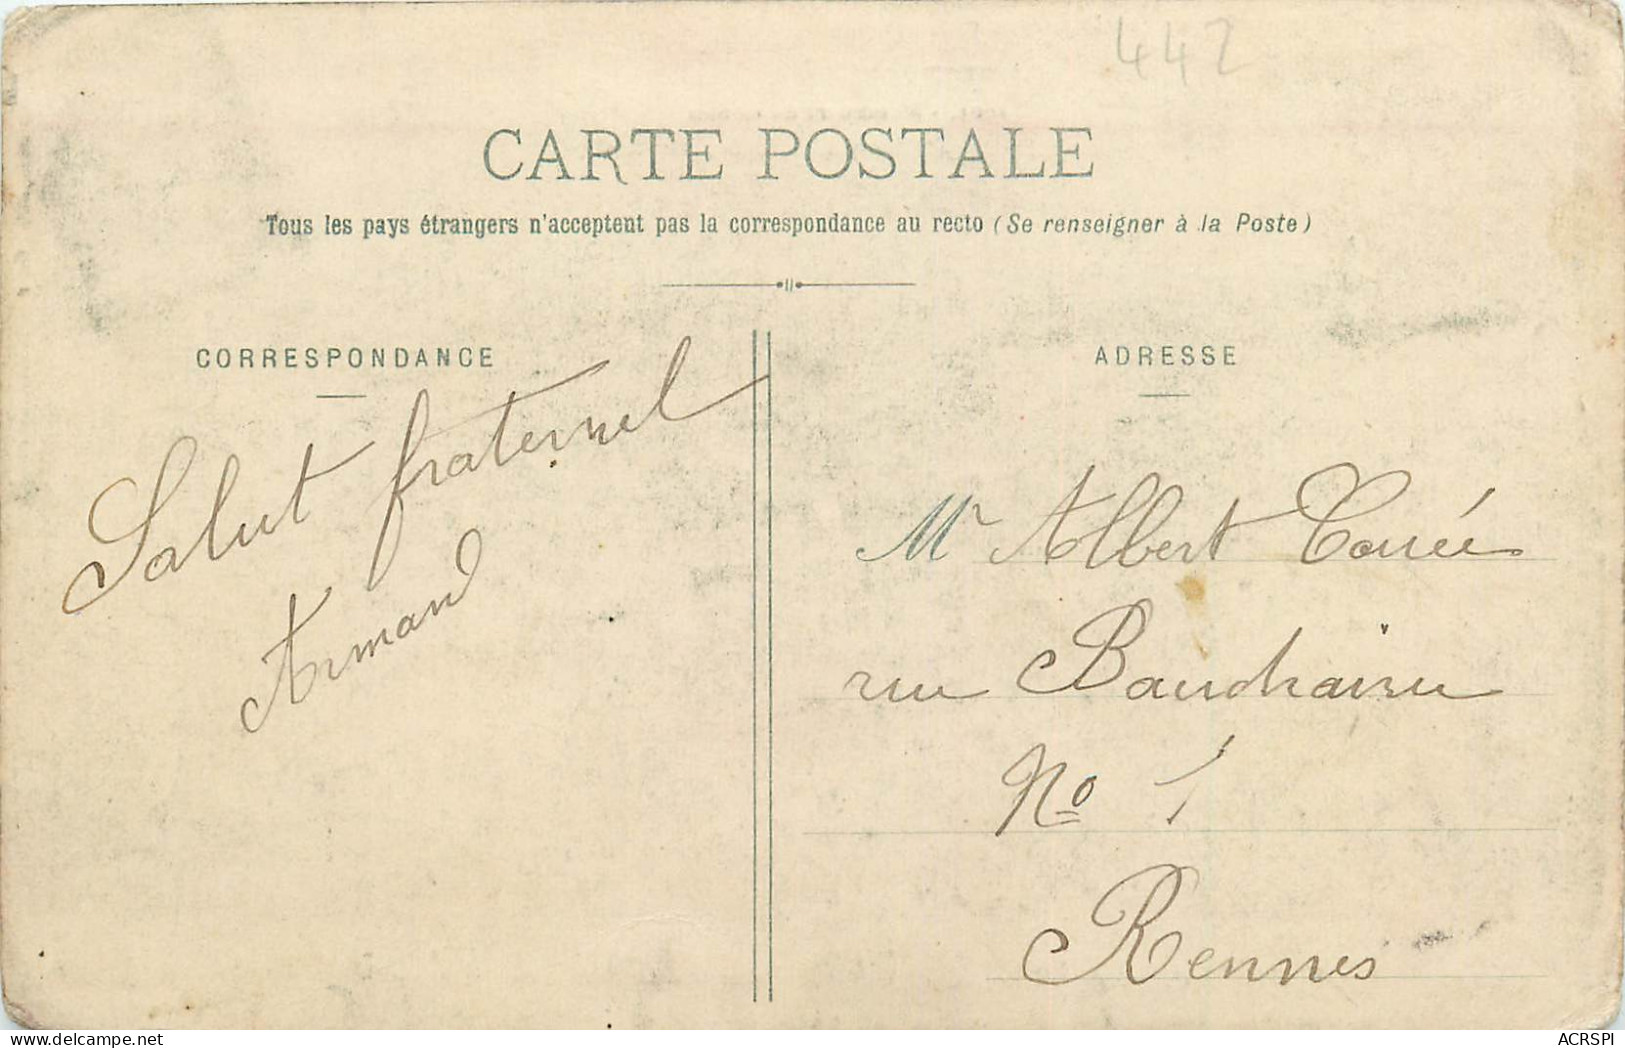 442
CARTE POSTALE
Tous les pays étrangers n'acceptent pas la correspondance au recto (Se renseigner à la Poste)
CORRESPONDANCE
Salut fraternel
Armand
ADRESSE
Mr Albert
rue Baudrairie
No 1
Rennes
delcampe.net
ACRSPI